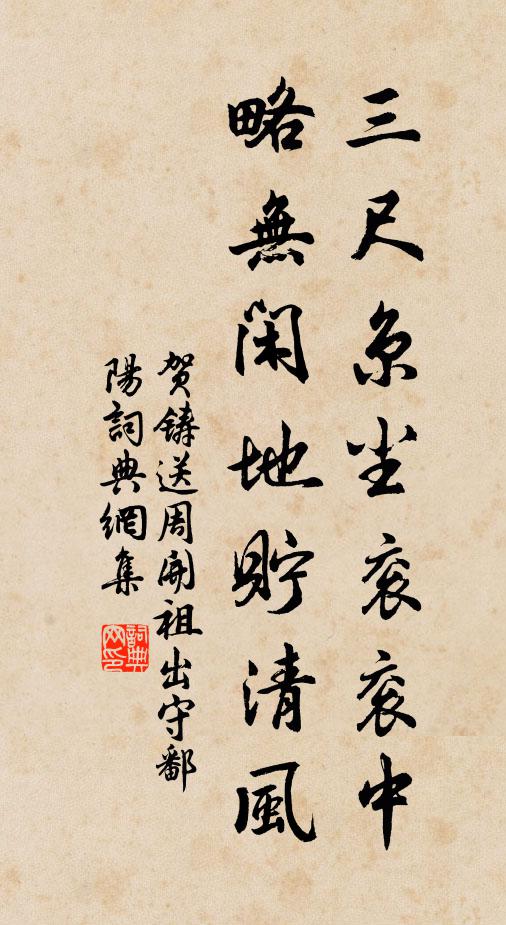 三尺京尘衮衮中
略無閑地貯清風
賀鑄送周開祖出守鄱
陽詞典網集
詞典
网印